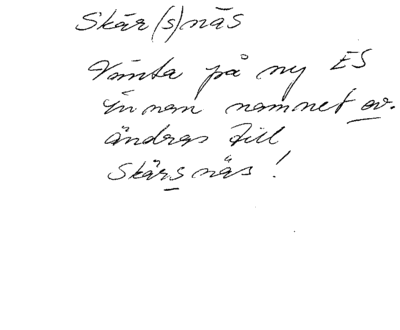 Skär(s)näs
Vänta på ny ES
innan namnet ev.
ändras till
Skärsnäs!